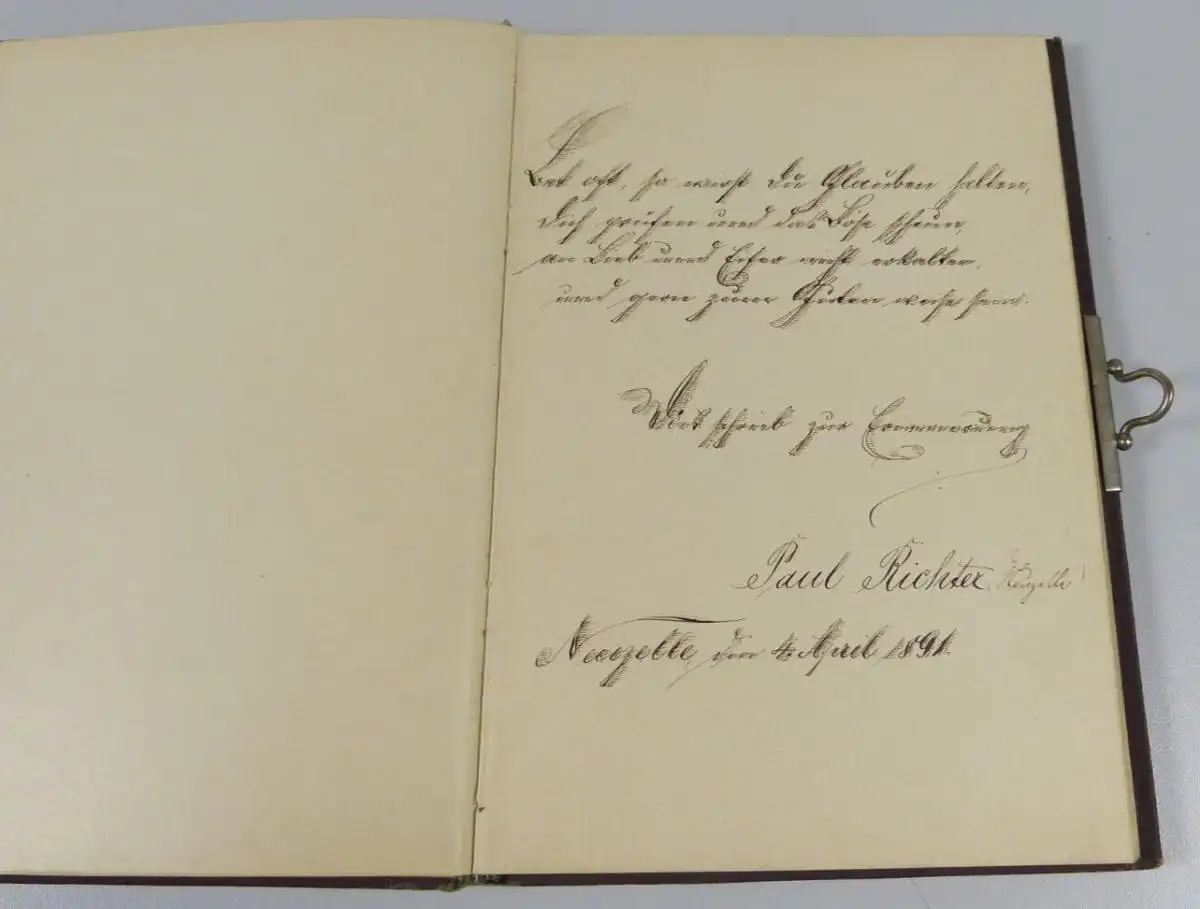 Bet oft, so wirst du Glauben halten,
dich prüfen und das Böse scheun,
an Lieb und Eifer nicht erkalten,
und gern zum Guten weise sein.
Dies schrieb zur Erinnerung
Paul Richter, Neuzelle
Neuzelle, den 4. April 1891.